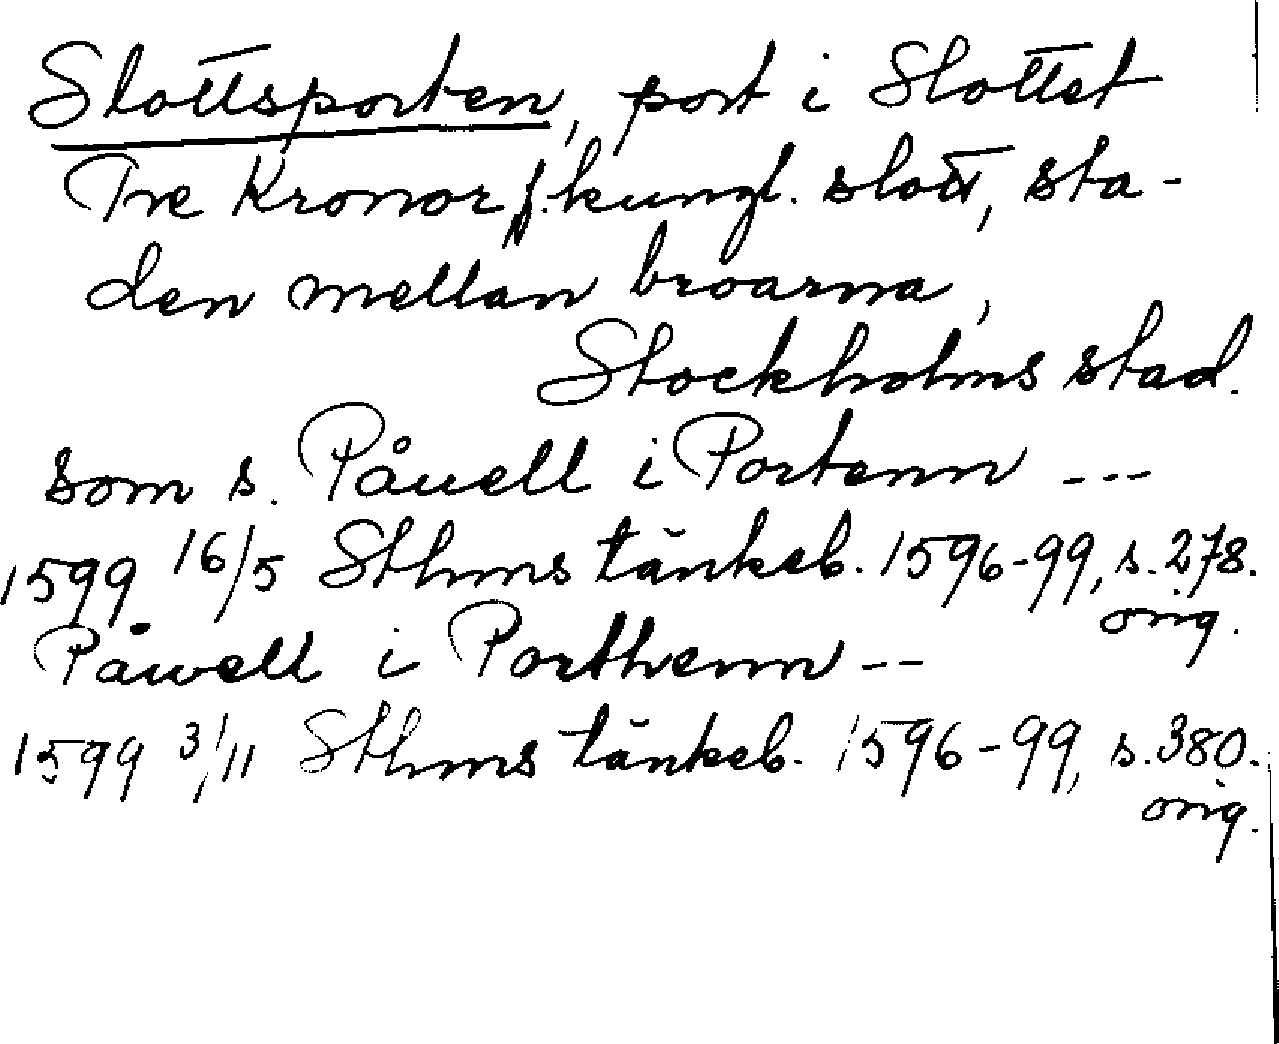 Slottsporten, port i Slottet
Tre Kronor, f. kungl. slott, sta-
den mellan broarna,
Stockholms stad.
som s. Påuell i Portenn ---
1599 16/5 Sthms tänkeb. 1596-99, s. 278.
orig.
Påwell i Porthenn --
1599 3/11 Sthms tänkeb. 1596-99, s. 380.
orig.